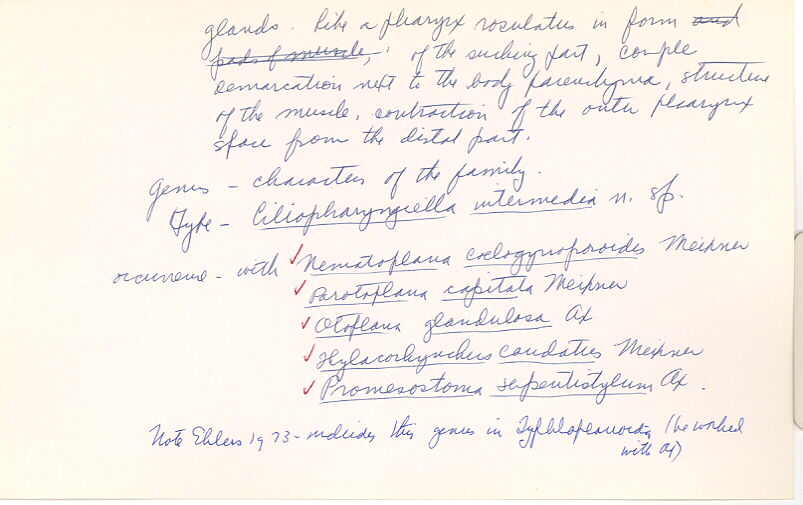 glands. Like a pharynx rosulatus in form and
pads of muscle, of the sucking part, comple
demarcation next to the body parenchyma, structure
of the muscle, contraction of the outer pharynx
space from the distal part.
Genus - characters of the family.
Type - Ciliopharyngiella intermedia n. sp.
occurrence - with ✓ Nematoplana coelogynoporoides Meixner
✓ Parotoplana capitata Meixner
✓ Otoplana glandulosa Ax
✓ Hylacorhynchus caudatus Meixner
✓ Promesostoma serpentistylum Ax.
Note Ehlers 1973 - includes this genus in Typhloplanoida (he worked
with Ax)